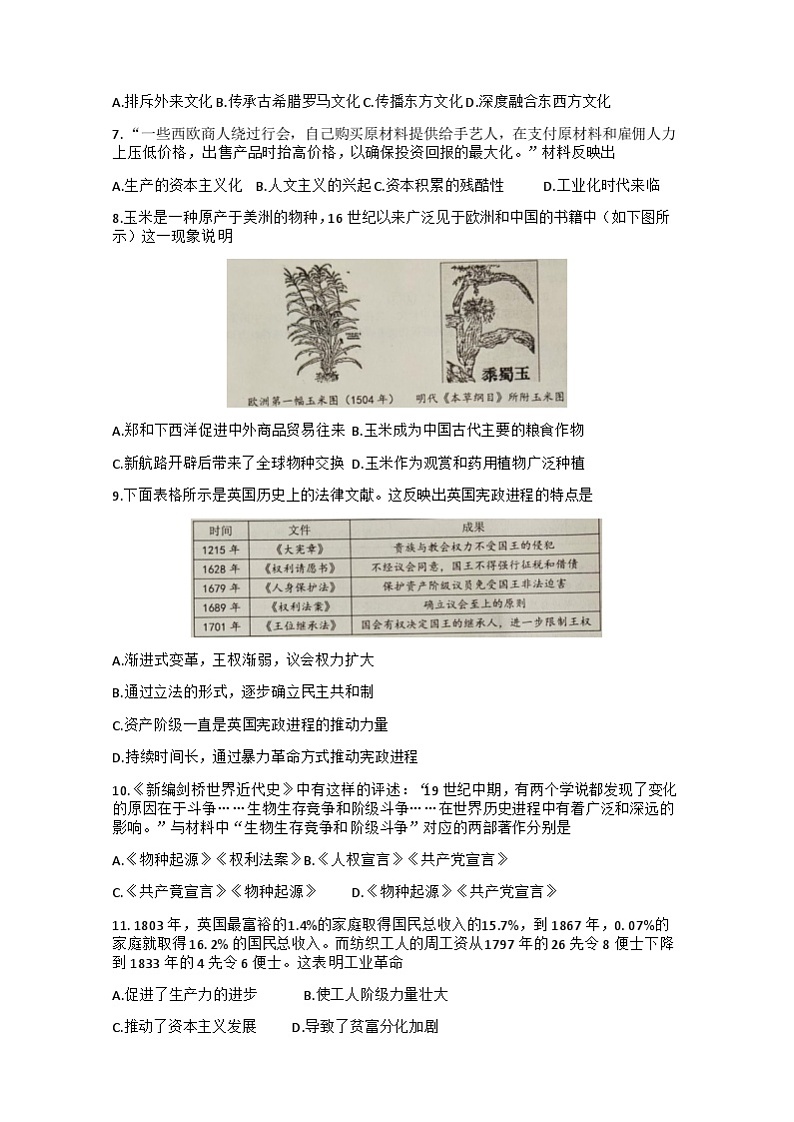 A.排斥外来文化 B.传承古希腊罗马文化 C.传播东方文化 D.深度融合东西方文化
7. “一些西欧商人绕过行会，自己购买原材料提供给手艺人，在支付原材料和雇佣人力
上压低价格，出售产品时抬高价格，以确保投资回报的最大化。”材料反映出
A.生产的资本主义化 B.人文主义的兴起 C.资本积累的残酷性 D.工业化时代来临
8.玉米是一种原产于美洲的物种，16 世纪以来广泛见于欧洲和中国的书籍中（如下图所
示）这一现象说明
黍蜀玉
欧洲第一幅玉米图（1504 年） 明代《本草纲目》所附玉米图
A.郑和下西洋促进中外商品贸易往来 B.玉米成为中国古代主要的粮食作物
C.新航路开辟后带来了全球物种交换 D.玉米作为观赏和药用植物广泛种植
9.下面表格所示是英国历史上的法律文献。这反映出英国宪政进程的特点是
时间 文件 成果
1215 年 《大宪章》 贵族与教会权力不受国王的侵犯
1628 年 《权利请愿书》 不经议会同意，国王不得强行征税和借债
1679 年 《人身保护法》 保护资产阶级议员免受国王非法迫害
1689 年 《权利法案》 确立议会至上的原则
1701 年 《王位继承法》 国会有权决定国王的继承人，进一步限制王权
A.渐进式变革，王权渐弱，议会权力扩大
B.通过立法的形式，逐步确立民主共和制
C.资产阶级一直是英国宪政进程的推动力量
D.持续时间长，通过暴力革命方式推动宪政进程
10.《新编剑桥世界近代史》中有这样的评述：“19 世纪中期，有两个学说都发现了变化
的原因在于斗争……生物生存竞争和阶级斗争……在世界历史进程中有着广泛和深远的
影响。”与材料中“生物生存竞争和阶级斗争”对应的两部著作分别是
A.《物种起源》《权利法案》B.《人权宣言》《共产党宣言》
C.《共产竟宣言》《物种起源》 D.《物种起源》《共产党宣言》
11. 1803 年，英国最富裕的1.4%的家庭取得国民总收入的15.7%，到 1867 年，0. 07%的
家庭就取得 16. 2% 的国民总收入。而纺织工人的周工资从1797 年的 26 先令 8 便士下降
到 1833 年的 4 先令 6 便士。这表明工业革命
A.促进了生产力的进步 B.使工人阶级力量壮大
C.推动了资本主义发展 D.导致了贫富分化加剧